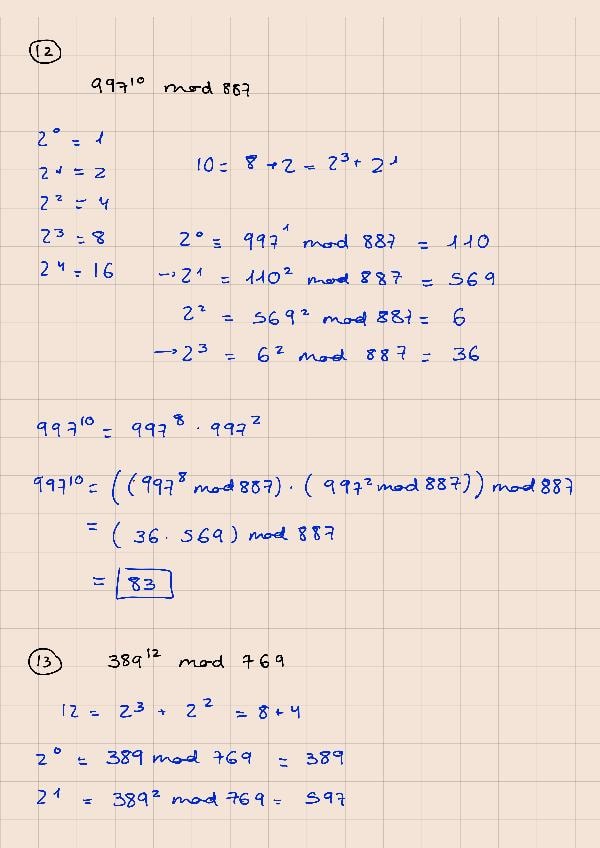 12
997¹⁰ mod 887
2⁰ = 1
2¹ = 2
2² = 4
2³ = 8
2⁴ = 16
10 = 8 + 2 = 2³ + 2¹
2⁰ = 997¹ mod 887 = 110
→ 2¹ = 110² mod 887 = 569
2² = 569² mod 887 = 6
→ 2³ = 6² mod 887 = 36
997¹⁰ = 997⁸ · 997²
997¹⁰ = ((997⁸ mod 887) · (997² mod 887)) mod 887
= (36 · 569) mod 887
= 83
13 389¹² mod 769
12 = 2³ + 2² = 8 + 4
2⁰ = 389 mod 769 = 389
2¹ = 389² mod 769 = 597